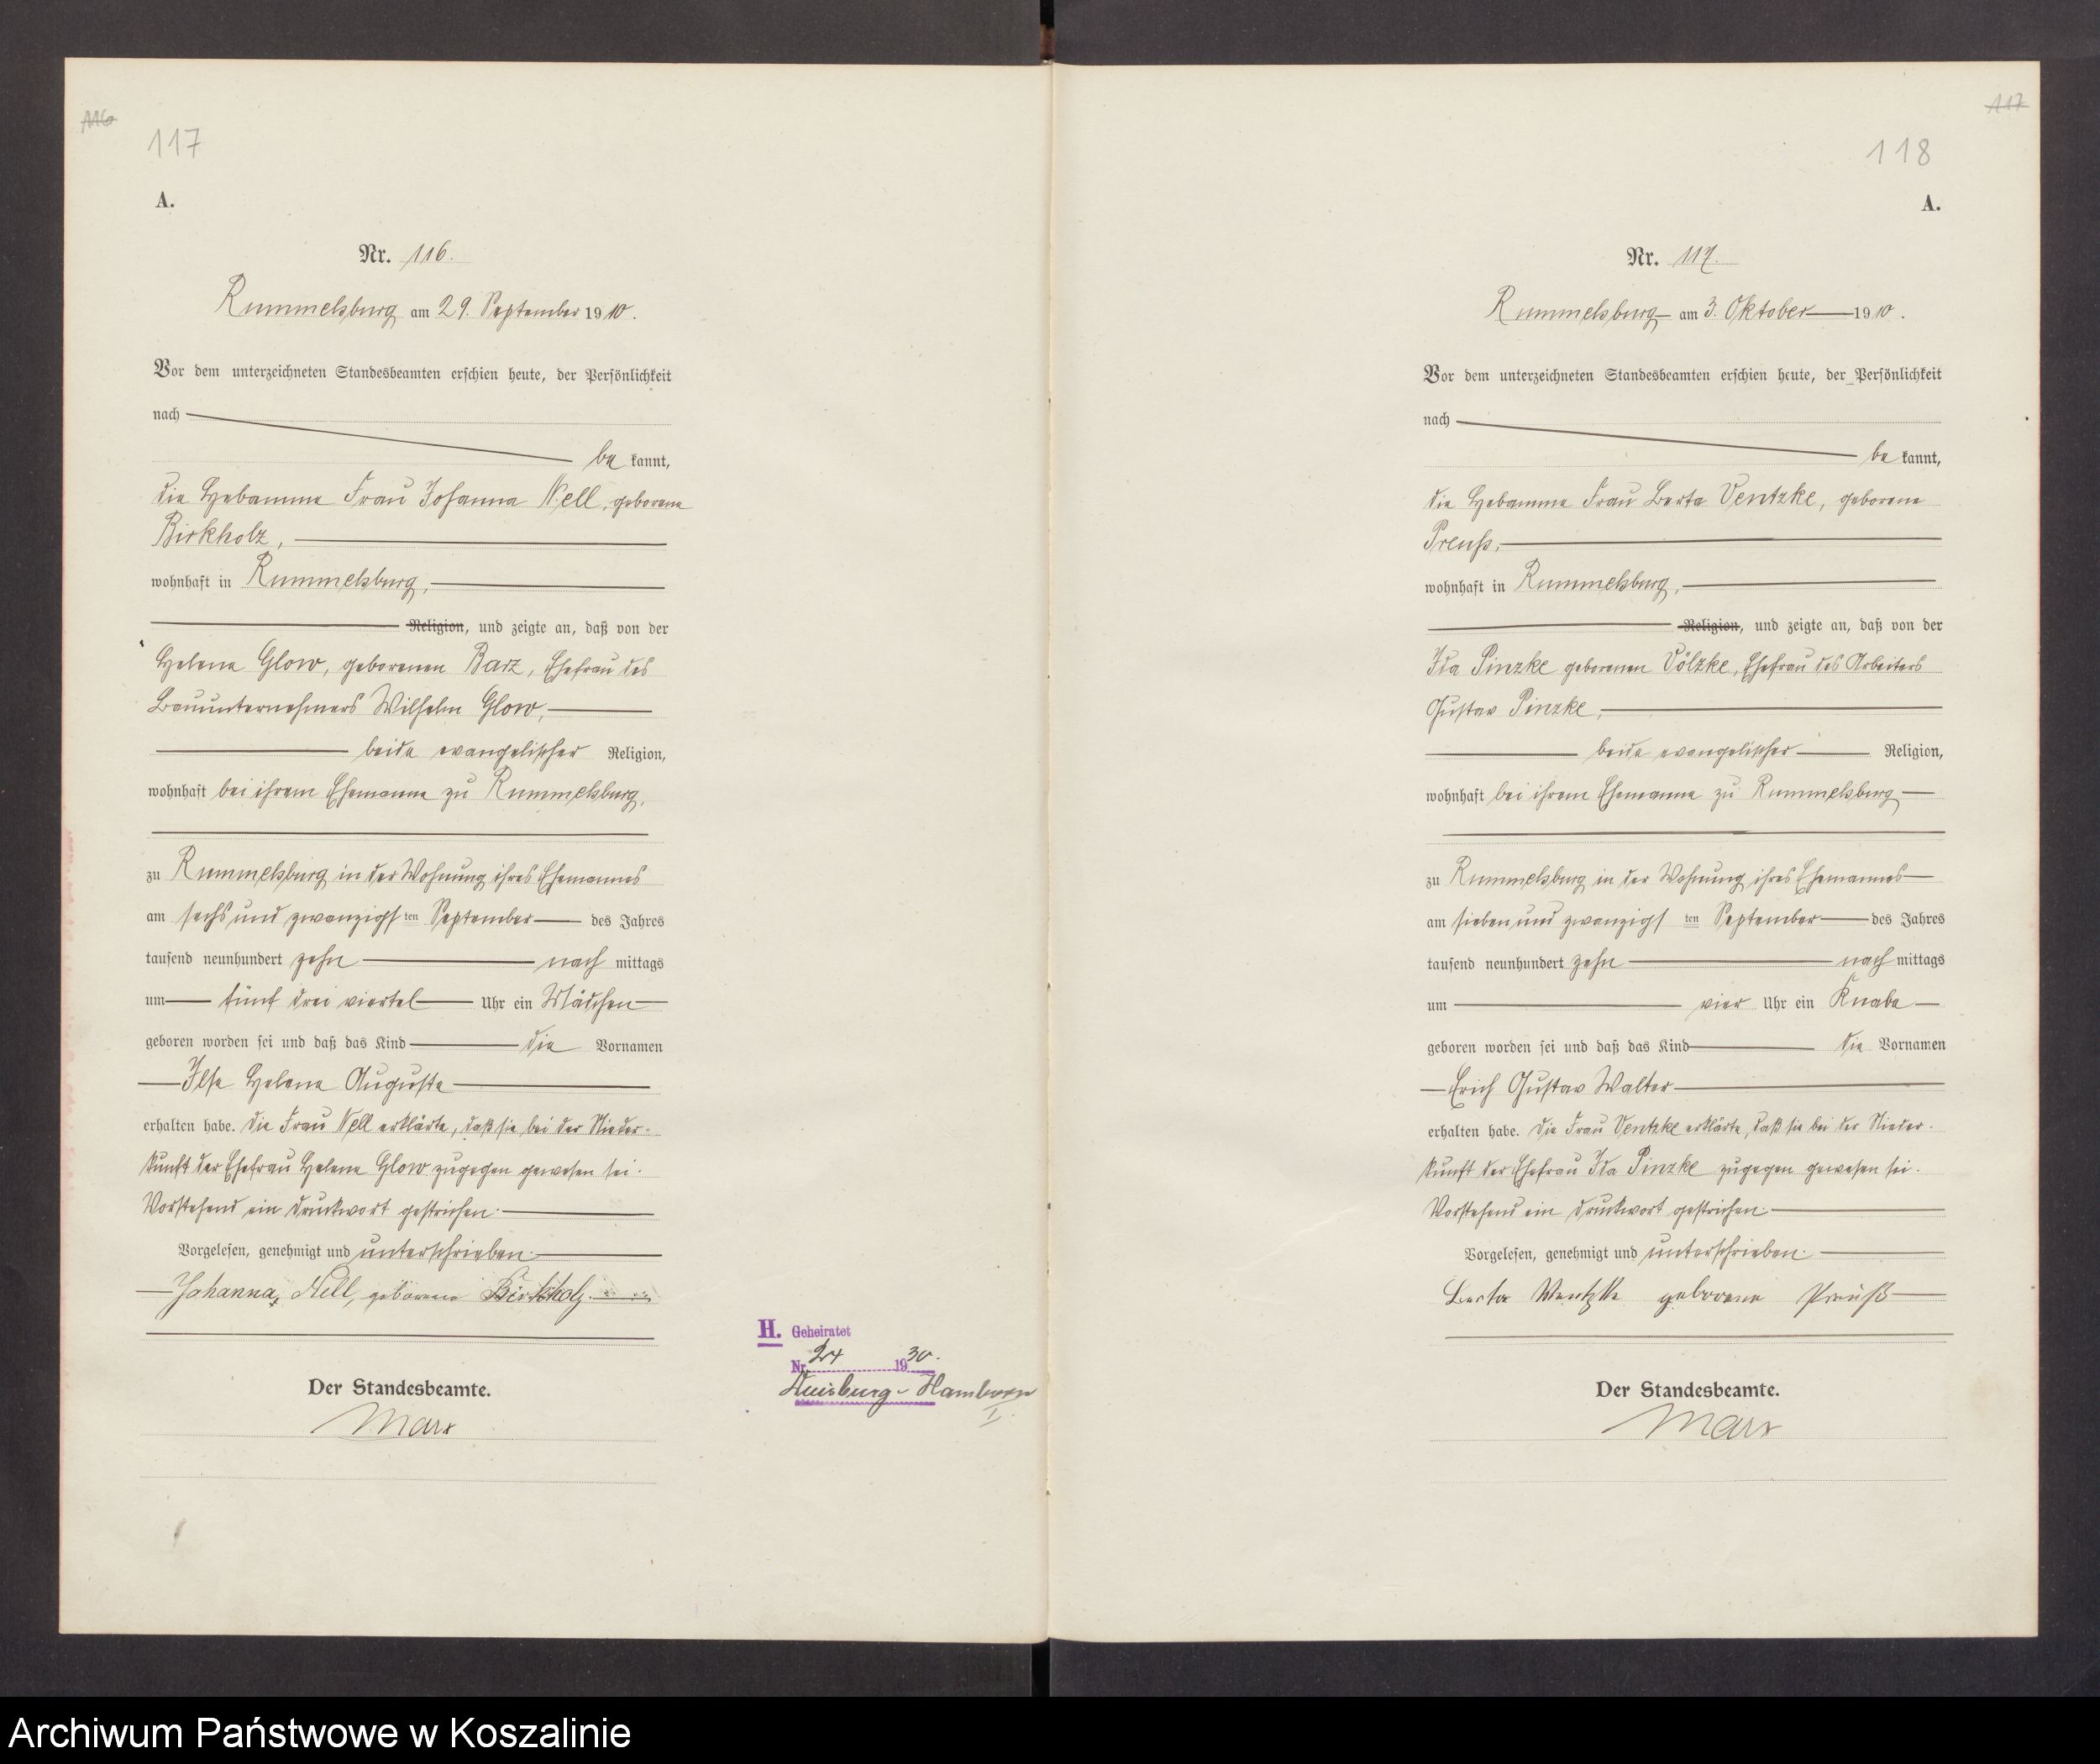 116
117
A.
Nr. 116.
Rummelsburg am 29. September 1910.
Vor dem unterzeichneten Standesbeamten erschien heute, der Persönlichkeit
nach
be kannt,
die Hebamme Frau Johanna Nell, geborene
Birkholz,
wohnhaft in Rummelsburg,
Religion, und zeigte an, daß von der
Helene Glow, geborenen Barz, Ehefrau des
Bauunternehmers Wilhelm Glow,
beide evangelischer Religion,
wohnhaft bei ihrem Ehemanne zu Rummelsburg,
zu Rummelsburg in der Wohnung ihres Ehemannes
am sechsundzwanzigsten September des Jahres
tausend neunhundert zehn nach mittags
um fünf drei viertel Uhr ein Mädchen
geboren worden sei und daß das Kind die Vornamen
Ilse Helene Auguste
erhalten habe. Die Frau Nell erklärte, daß sie bei der Nieder-
kunft der Ehefrau Helene Glow zugegen gewesen sei.
Vorstehend ein Druckwort gestrichen.
Vorgelesen, genehmigt und unterschrieben.
Johanna Nell, geborene Birkholz.
Der Standesbeamte.
Marx
H. Geheiratet
Nr. 24 1930.
Duisburg-Hamborn
I.
117
118
A.
Nr. 117.
Rummelsburg am 3. Oktober 1910.
Vor dem unterzeichneten Standesbeamten erschien heute, der Persönlichkeit
nach
be kannt,
die Hebamme Frau Berta Ventzke, geborene
Preuß,
wohnhaft in Rummelsburg,
Religion, und zeigte an, daß von der
Ida Pinzke geborenen Völzke, Ehefrau des Arbeiters
Gustav Pinzke,
beide evangelischer Religion,
wohnhaft bei ihrem Ehemanne zu Rummelsburg
zu Rummelsburg in der Wohnung ihres Ehemannes
am siebenundzwanzigsten September des Jahres
tausend neunhundert zehn nach mittags
um vier Uhr ein Knabe
geboren worden sei und daß das Kind die Vornamen
Erich Gustav Walter
erhalten habe. Die Frau Ventzke erklärte, daß sie bei der Nieder-
kunft der Ehefrau Ida Pinzke zugegen gewesen sei.
Vorstehend ein Druckwort gestrichen.
Vorgelesen, genehmigt und unterschrieben.
Berta Ventzke geborene Preuß
Der Standesbeamte.
Marx
Archiwum Państwowe w Koszalinie